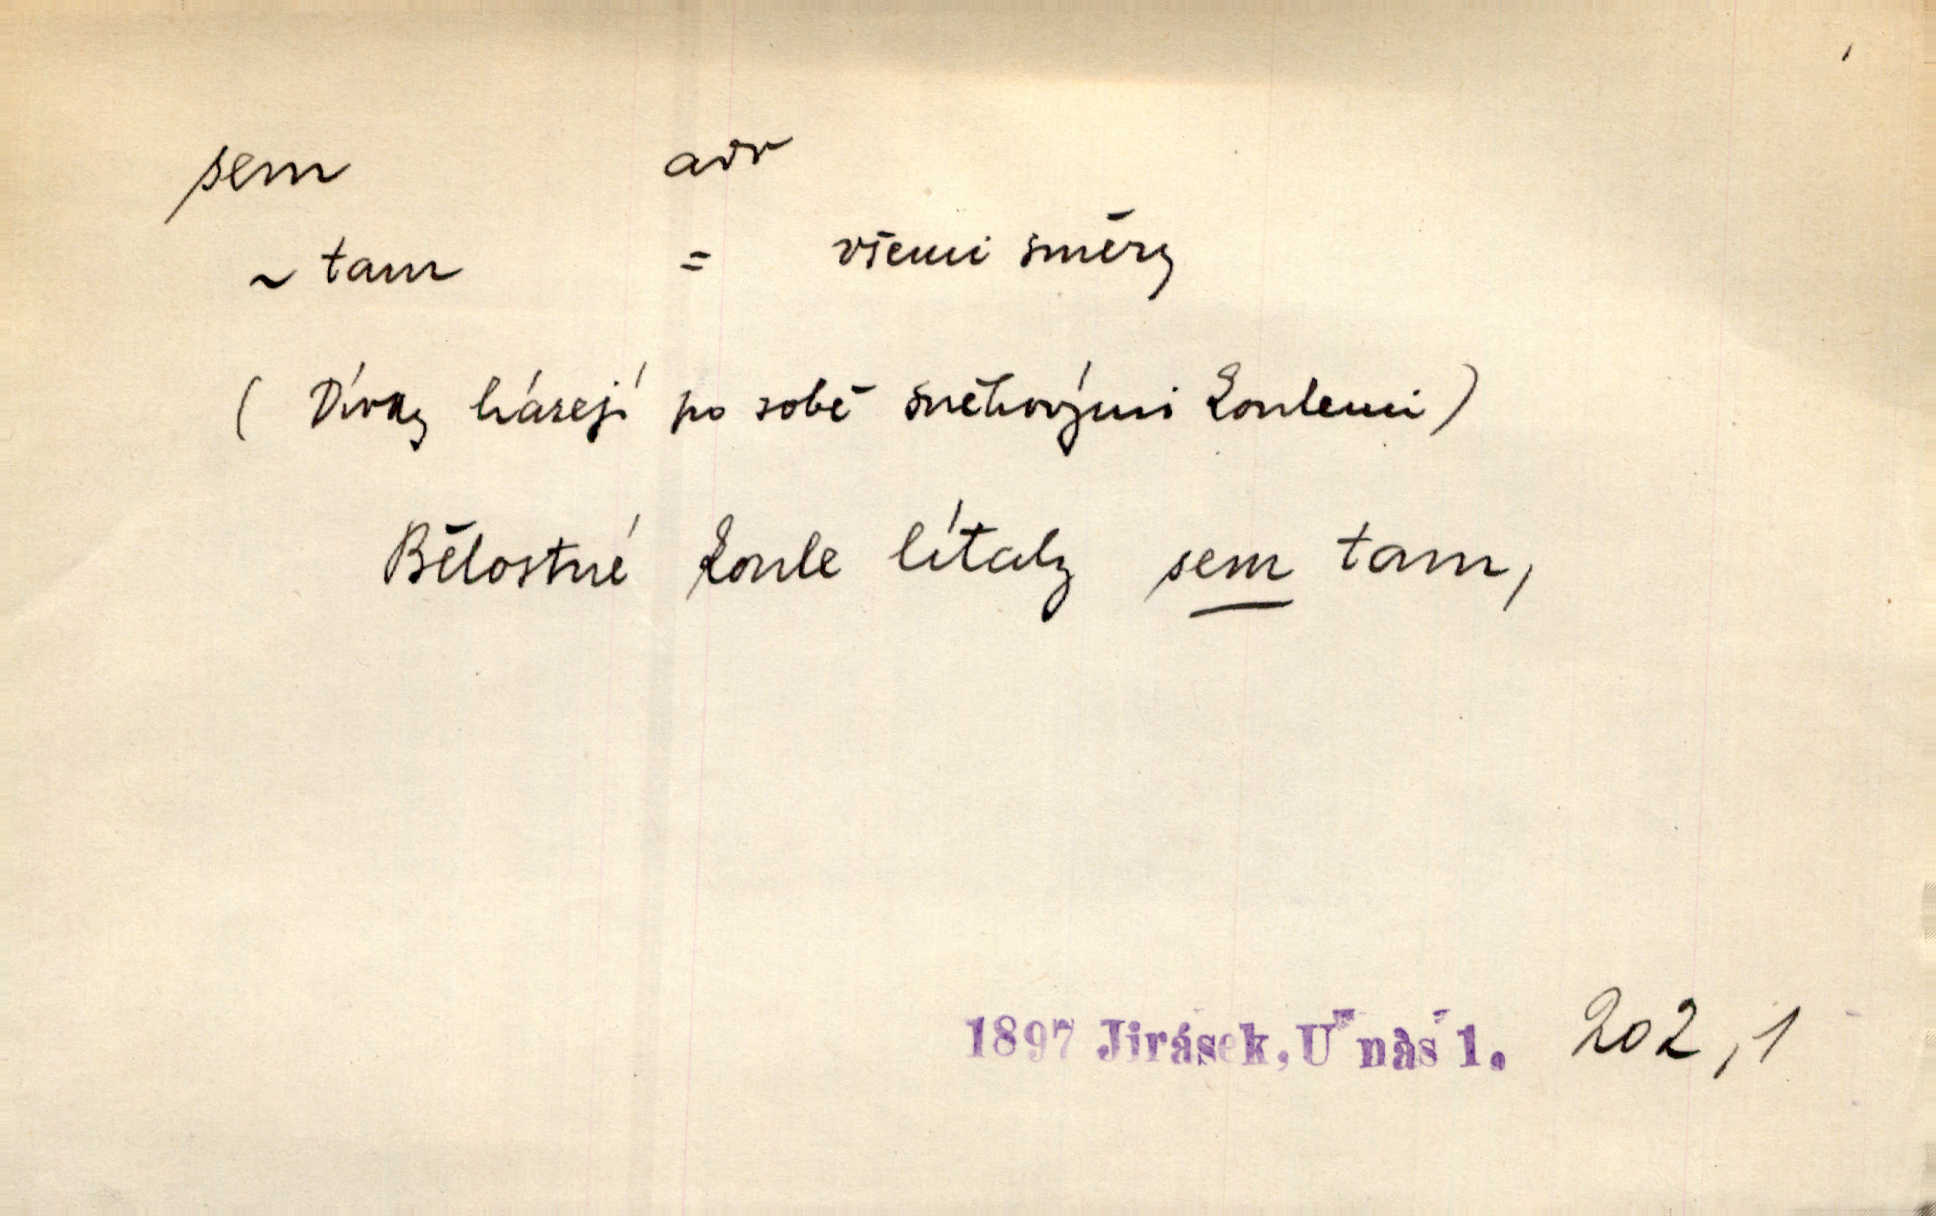 sem adv
~ tam = všemi směry
( Dívky házejí po sobě sněhovými koulemi )
Bělostné koule lítaly sem tam,
1897 Jirásek, U nás 1. 202,1